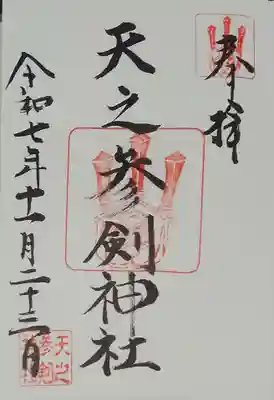 奉拝
天之参剣神社
令和七年十一月二十三日
天之
参剣